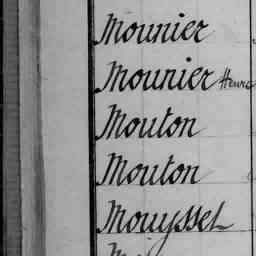 Mounier
Mounier Henri
Mouton
Mouton
Mouysset